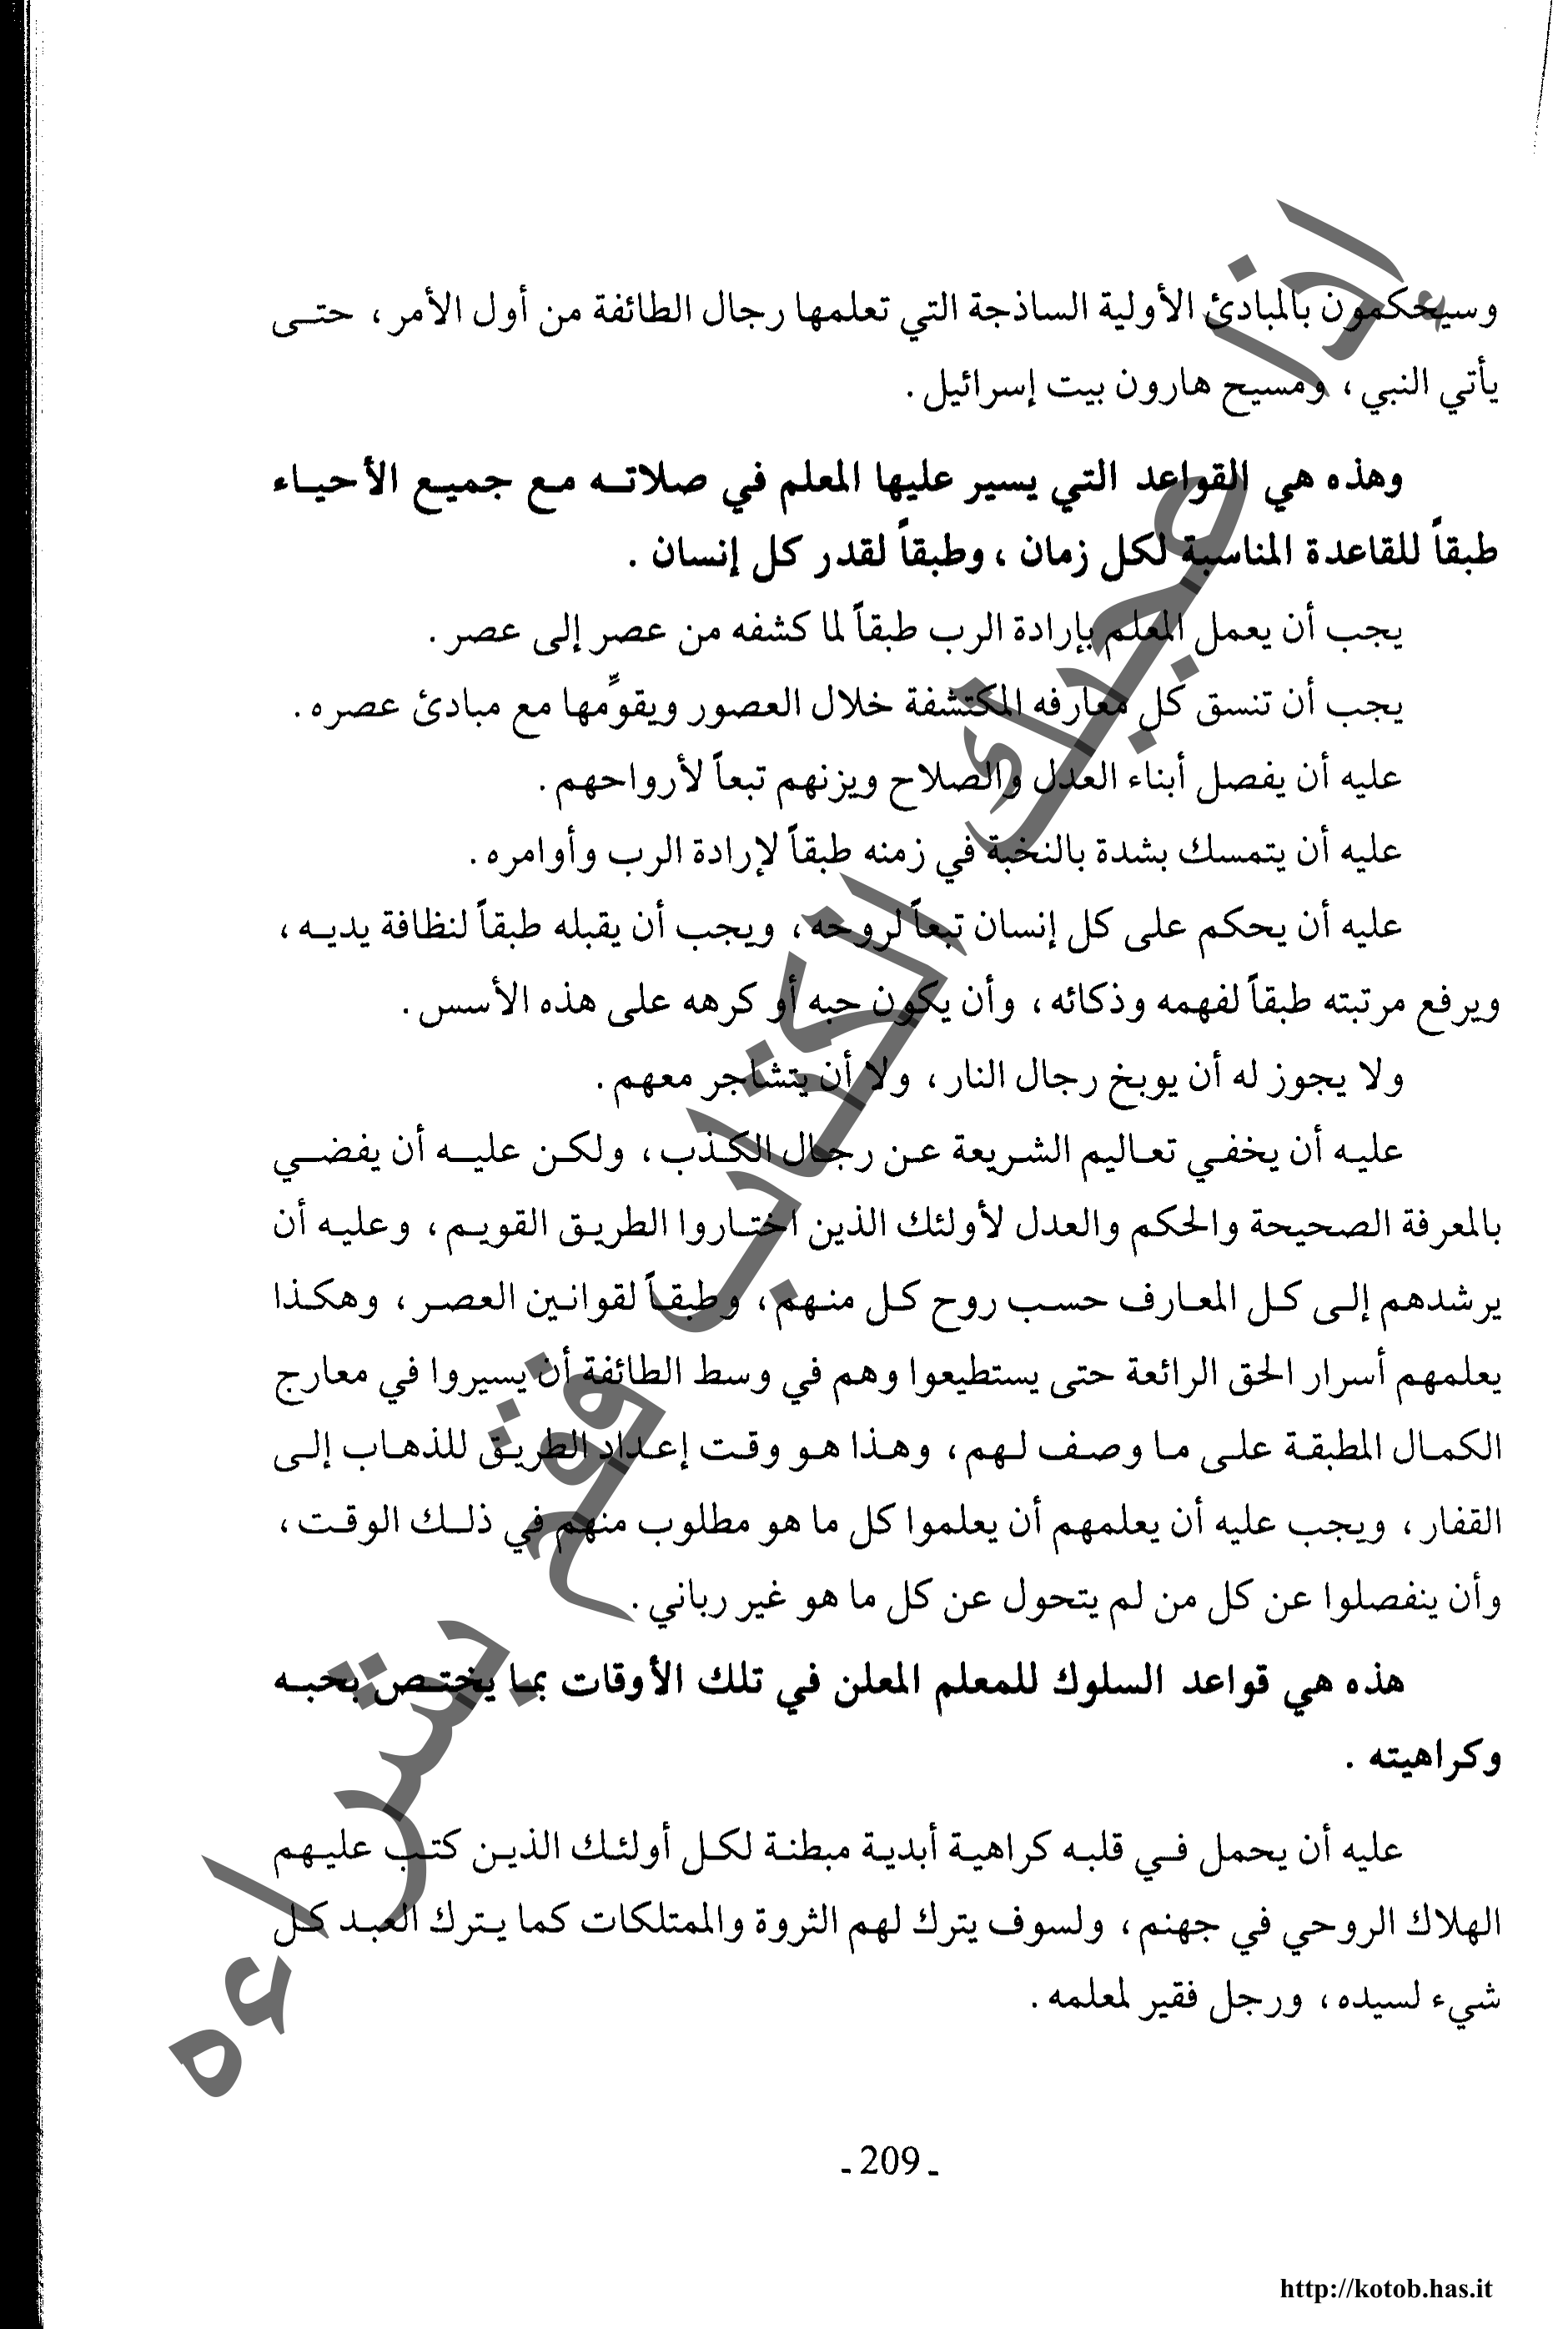 وسيحكمون بالمبادئ الأولية الساذجة التي تعلمها رجال الطائفة من أول الأمر، حتى
يأتي النبي، ومسيح هارون بيت إسرائيل.
وهذه هي القواعد التي يسير عليها المعلم في صلاته مع جميع الأحياء
طبقاً للقاعدة المناسبة لكل زمان، وطبقاً لقدر كل إنسان.
يجب أن يعمل المعلم بإرادة الرب طبقاً لما كشفه من عصر إلى عصر.
يجب أن تنسق كل معارفه المكتشفة خلال العصور ويقوِّمها مع مبادئ عصره.
عليه أن يفصل أبناء العدل والصلاح ويزنهم تبعاً لأرواحهم.
عليه أن يتمسك بشدة بالنخبة في زمنه طبقاً لإرادة الرب وأوامره.
عليه أن يحكم على كل إنسان تبعاً لروحه، ويجب أن يقبله طبقاً لنظافة يديه،
ويرفع مرتبته طبقاً لفهمه وذكائه، وأن يكون حبه أو كرهه على هذه الأسس.
ولا يجوز له أن يوبخ رجال النار، ولا أن يتشاجر معهم.
عليه أن يخفي تعاليم الشريعة عن رجال الكذب، ولكن عليه أن يفضي
بالمعرفة الصحيحة والحكم والعدل لأولئك الذين اختاروا الطريق القويم، وعليه أن
يرشدهم إلى كل المعارف حسب روح كل منهم، وطبقاً لقوانين العصر، وهكذا
يعلمهم أسرار الحق الرائعة حتى يستطيعوا وهم في وسط الطائفة أن يسيروا في معارج
الكمال المطبقة على ما وصف لهم، وهذا هو وقت إعداد الطريق للذهاب إلى
القفار، ويجب عليه أن يعلمهم أن يعلموا كل ما هو مطلوب منهم في ذلك الوقت،
وأن ينفصلوا عن كل من لم يتحول عن كل ما هو غير رباني.
هذه هي قواعد السلوك للمعلم المعلن في تلك الأوقات بما يختص بحبه
وكراهيته.
عليه أن يحمل في قلبه كراهية أبدية مبطنة لكل أولئك الذين كتب عليهم
الهلاك الروحي في جهنم، ولسوف يترك لهم الثروة والممتلكات كما يترك العبد كل
شيء لسيده، ورجل فقير لمعلمه.
- 209 -
http://kotob.has.it
إذا أعجبك الكتاب فقم بشراءه